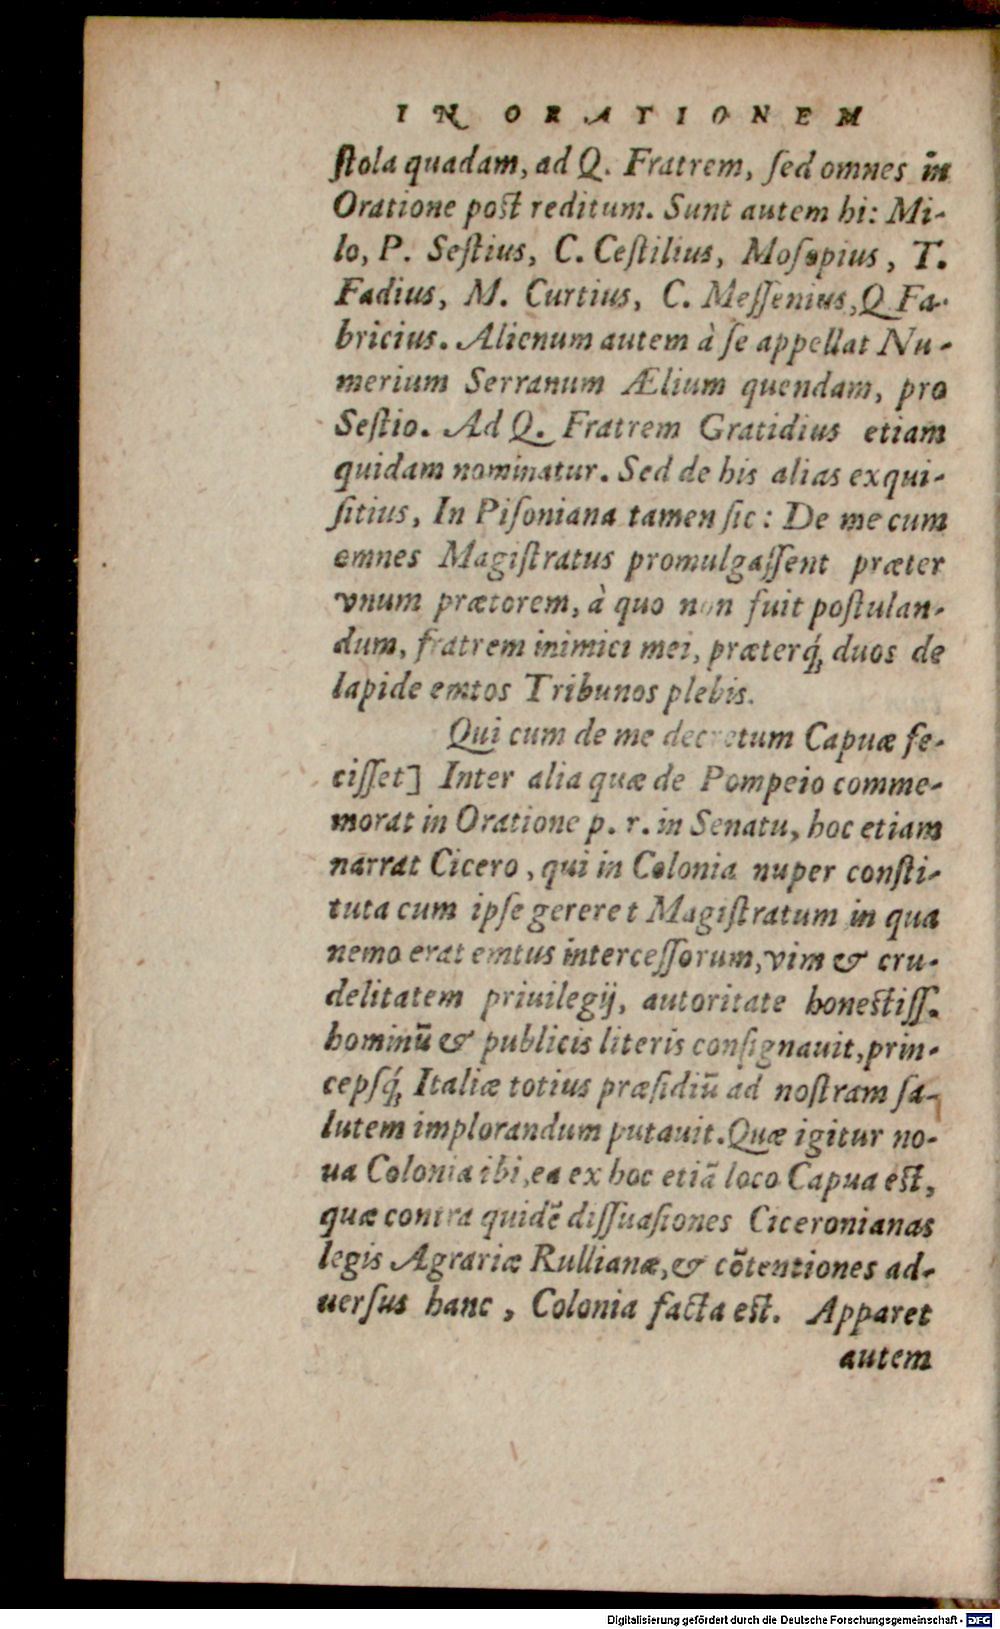 IN ORATIONEM
ſtola quadam, ad Q. Fratrem, ſed omnes in
Oratione poſt reditum. Sunt autem hi: Mi-
lo, P. Seſtius, C. Ceſtilius, Moſopius, T.
Fadius, M. Curtius, C. Meſſenius, Q Fa-
bricius. Alienum autem à ſe appellat Nu-
merium Serranum Ælium quendam, pro
Seſtio. Ad Q. Fratrem Gratidius etiam
quidam nominatur. Sed de his alias exqui-
ſitius, In Piſoniana tamen ſic: De me cum
omnes Magiſtratus promulgaſſent præter
vnum prætorem, à quo non fuit poſtulan-
dum, fratrem inimici mei, præterq́; duos de
lapide emtos Tribunos plebis.
Qui cum de me decretum Capuæ fe-
ciſſet] Inter alia quæ de Pompeio comme-
morat in Oratione p. r. in Senatu, hoc etiam
narrat Cicero, qui in Colonia nuper conſti-
tuta cum ipſe gereret Magiſtratum in qua
nemo erat emtus interceſſorum, vim & cru-
delitatem priuilegij, autoritate honeſtiſſ.
hominũ & publicis literis conſignauit, prin-
cepſq́; Italiæ totius præſidiũ ad noſtram ſa-
lutem implorandum putauit. Quæ igitur no-
ua Colonia ibi, ea ex hoc etiã loco Capua eſt,
quæ contra quidẽ diſſuaſiones Ciceronianas
legis Agrariæ Rullianæ, & cõtentiones ad-
uerſus hanc, Colonia facta eſt. Apparet
autem
Digitalisierung gefördert durch die Deutsche Forschungsgemeinschaft - DFG